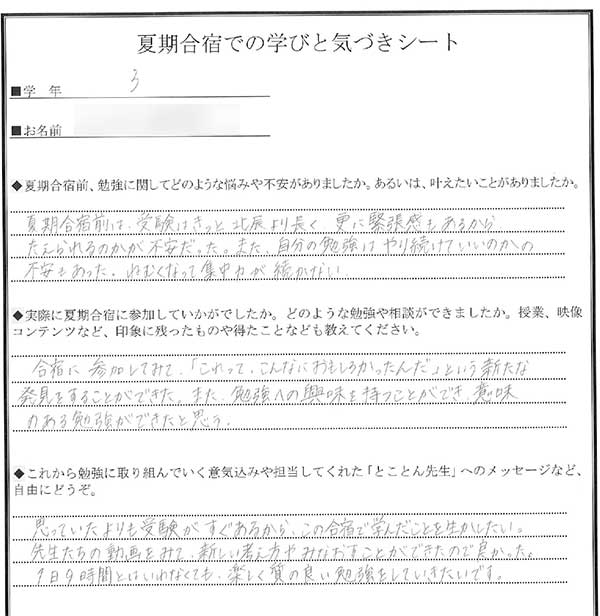 夏期合宿での学びと気づきシート
■学　年　3
■お名前
◆夏期合宿前、勉強に関してどのような悩みや不安がありましたか。あるいは、叶えたいことがありましたか。
夏期合宿前は、受験はきっと北辰より長く 更に緊張感もあるから
たえられるのかが不安だった。また、自分の勉強は やり続けていいのかの
不安もあった。ねむくなって集中力が続かない
◆実際に夏期合宿に参加していかがでしたか。どのような勉強や相談ができましたか。授業、映像
コンテンツなど、印象に残ったものや得たことなども教えてください。
合宿に参加してみて、「これって、こんなにおもしろかったんだ」という新たな
発見をすることができた。また、勉強への興味を持つことができ 意味
のある勉強ができたと思う.
◆これから勉強に取り組んでいく意気込みや担当してくれた「とことん先生」へのメッセージなど、
自由にどうぞ。
思っていたよりも受験がすぐあるから、この合宿で学んだことを生かしたい。
先生たちの動画をみて、新しい考え方やみなおすことができたので良かった。
1日9時間とはいわなくても、楽しく質の良い勉強をしていきたいです。